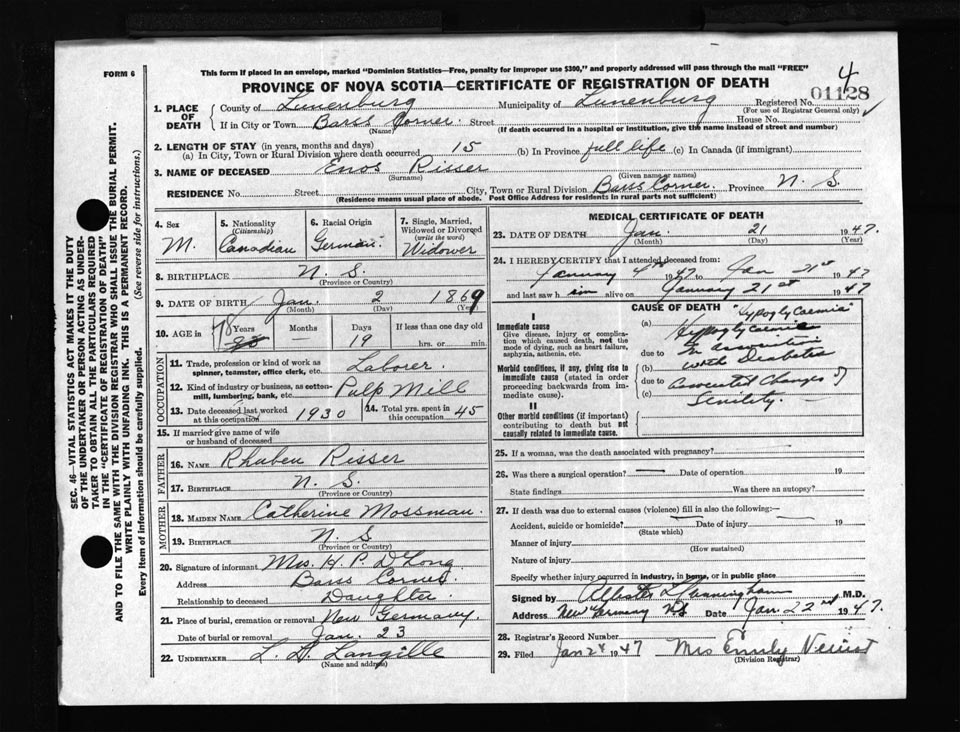 FORM 6
This form if placed in an envelope, marked "Dominion Statistics—Free, penalty for improper use $300," and properly addressed will pass through the mail "FREE"
PROVINCE OF NOVA SCOTIA—CERTIFICATE OF REGISTRATION OF DEATH
4
01128
1. PLACE OF DEATH { County of Lunenburg Municipality of Lunenburg Registered No.
(For use of Registrar General only)
If in City or Town Barss Corner. Street House No.
(Name) (If death occurred in a hospital or institution, give the name instead of street and number)
2. LENGTH OF STAY (in years, months and days)
(a) In City, Town or Rural Division where death occurred 15 (b) In Province full life (c) In Canada (if immigrant)
3. NAME OF DECEASED Enos Risser
(Surname) (Given name or names)
RESIDENCE No. Street City, Town or Rural Division Barss Corner. Province N. S.
(Residence means usual place of abode. Post Office Address for residents in rural parts not sufficient)
4. Sex M.
5. Nationality (Citizenship) Canadian
6. Racial Origin German.
7. Single, Married, Widowed or Divorced (write the word) Widower
8. BIRTHPLACE N. S.
(Province or Country)
9. DATE OF BIRTH Jan. 2 1869
(Month) (Day) (Year)
10. AGE in { 78 Years — Months 19 Days If less than one day old hrs. or min.
OCCUPATION
11. Trade, profession or kind of work as spinner, teamster, office clerk, etc. Laborer.
12. Kind of industry or business, as cotton-mill, lumbering, bank, etc. Pulp Mill
13. Date deceased last worked at this occupation 1930 14. Total yrs. spent in this occupation 45
15. If married give name of wife or husband of deceased
FATHER
16. NAME Rhuben Risser
17. BIRTHPLACE N. S.
(Province or Country)
MOTHER
18. MAIDEN NAME Catherine Mossman.
19. BIRTHPLACE N. S.
(Province or Country)
20. Signature of informant Mrs. H. P. D'Long
Address Barss Corner.
Relationship to deceased Daughter.
21. Place of burial, cremation or removal New Germany.
Date of burial or removal Jan. 23
22. UNDERTAKER L. D. Langille
(Name and address)
MEDICAL CERTIFICATE OF DEATH
23. DATE OF DEATH Jan. 21 1947.
(Month) (Day) (Year)
24. I HEREBY CERTIFY that I attended deceased from:
January 4th 1947 to Jan 21st 1947
and last saw him alive on January 21st 1947
I
Immediate cause
Give disease, injury or complication which caused death, not the mode of dying, such as heart failure, asphyxia, asthenia, etc.
Morbid conditions, if any, giving rise to immediate cause (stated in order proceeding backwards from immediate cause).
II
Other morbid conditions (if important) contributing to death but not causally related to immediate cause.
CAUSE OF DEATH "Hypoglycaemia"
(a) Hypoglycaemia
due to In association
(b) with Diabetes
due to Associated Changes of
(c) Senility.
25. If a woman, was the death associated with pregnancy?
26. Was there a surgical operation? — Date of operation 19
State findings Was there an autopsy?
27. If death was due to external causes (violence) fill in also the following:—
Accident, suicide or homicide? Date of injury 19
(State which)
Manner of injury
(How sustained)
Nature of injury
Specify whether injury occurred in industry, in home, or in public place
Signed by Cunningham M.D.
Address New Germany NS Date Jan. 22nd 1947.
28. Registrar's Record Number
29. Filed Jan 24 1947 Mrs Emily
(Division Registrar)
SEC. 46—VITAL STATISTICS ACT MAKES IT THE DUTY
OF THE UNDERTAKER OR PERSON ACTING AS UNDER-
TAKER TO OBTAIN ALL THE PARTICULARS REQUIRED
IN THE "CERTIFICATE OF REGISTRATION OF DEATH"
AND TO FILE THE SAME WITH THE DIVISION REGISTRAR WHO SHALL ISSUE THE BURIAL PERMIT.
WRITE PLAINLY WITH UNFADING INK. THIS IS A PERMANENT RECORD.
Every item of information should be carefully supplied. (See reverse side for instructions.)